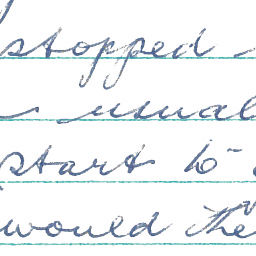 stopped
usual
start to
would the